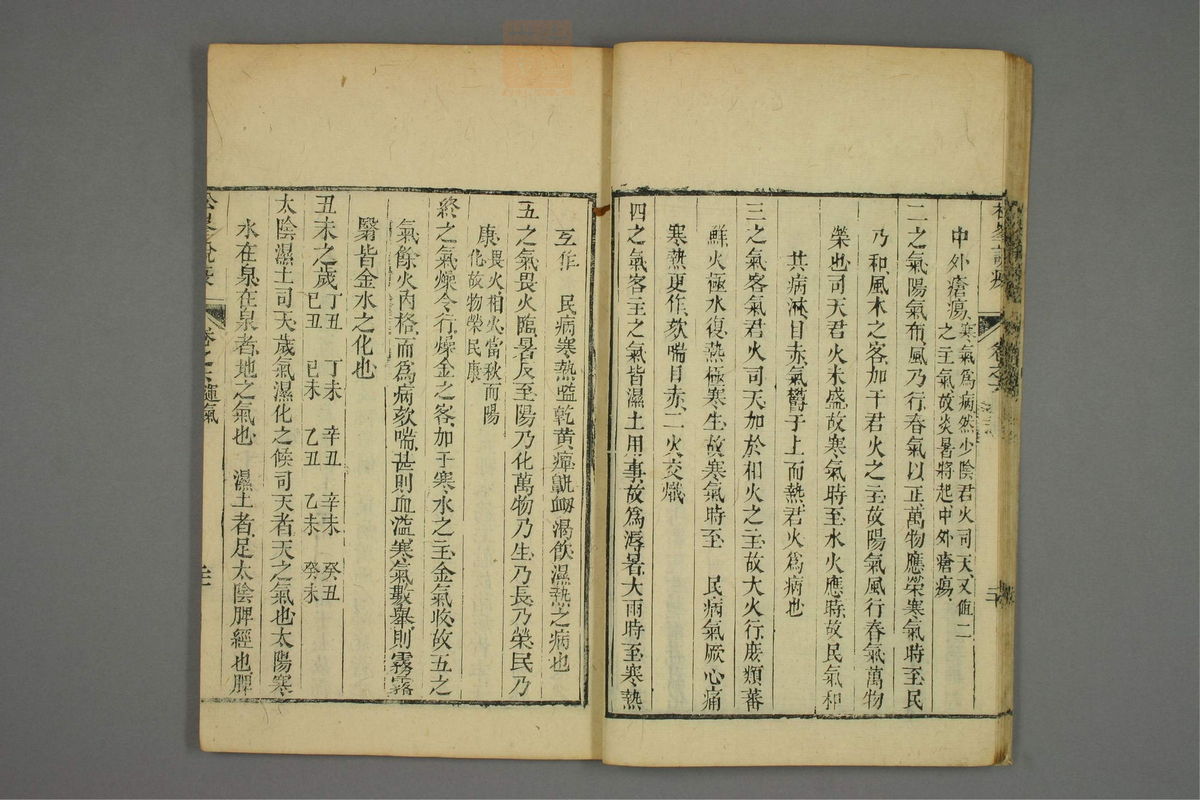 卷之六
中外瘡瘍寒氣爲病然少陰君火司天又值二
之主氣故炎暑將起中外瘡瘍
二之氣陽氣布風乃行春氣以正萬物應榮寒氣時至民
乃和風木之客加于君火之主故陽氣風行春氣萬物
榮也司天君火未盛故寒氣時至水火應時故民氣和
其病淋目赤氣欝于上而熱君火爲病也
三之氣客氣君火司天加於相火之主故大火行庻類蕃
鮮火極水復熱極寒生故寒氣時至 民病氣厥心痛
寒熱更作欬喘目赤二火交熾
四之氣客主之氣皆濕土用事故爲溽暑大雨時至寒熱
互作 民病寒熱嗌乾黄癉鼽衂渴飲濕熱之病也
五之氣畏火臨暑反至陽乃化萬物乃生乃長乃榮民乃
康畏火相火當秋而陽
化故物榮民康
終之氣燥令行燥金之客加于寒水之主金氣收故五之
氣餘火内格而爲病欬喘甚則血溢寒氣數舉則霧霿
翳皆金水之化也
丑未之歲丁丑 丁未 辛丑 辛未 癸丑
己丑 己未 乙丑 乙未 癸未
太陰濕土司天歲氣濕化之候司天者天之氣也太陽寒
水在泉在泉者地之氣也 濕土者足太陰脾經也脾
卷之六 運氣